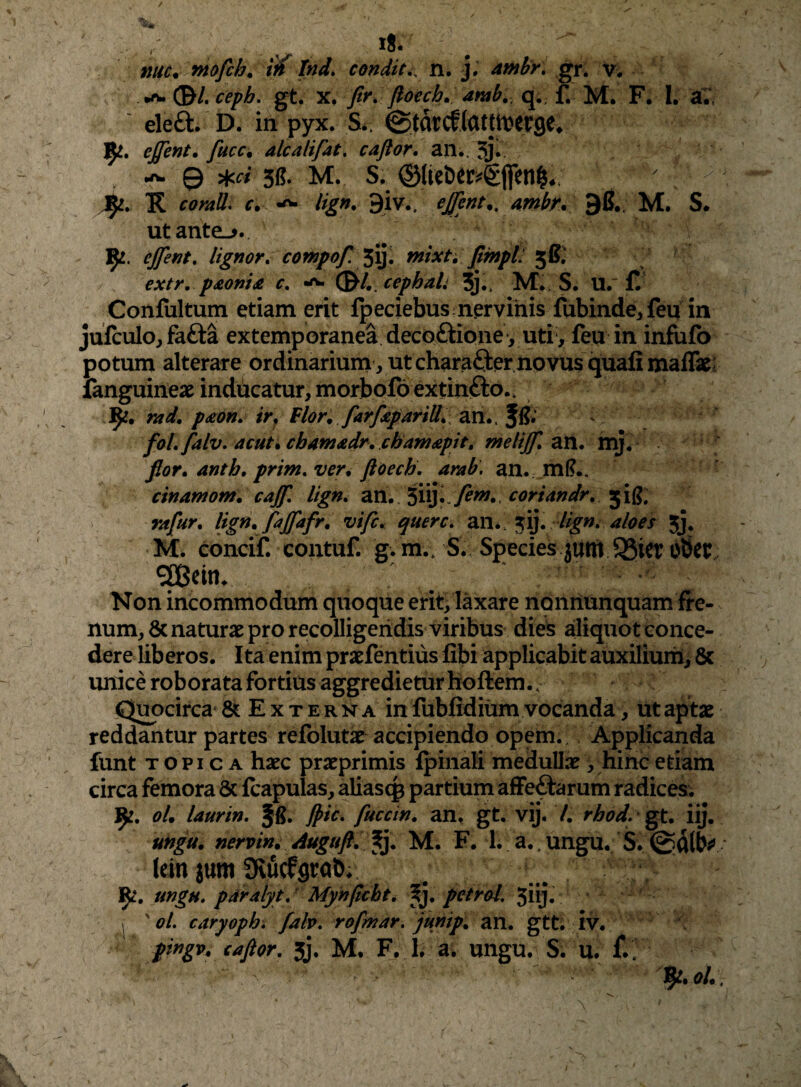 18.
nuc. mosch. in Ind. condit. n. j. ambr. gr. v.
🝞 ol. ceph. gt. x. sir. stoech. arab. q. s. M. F. l. a.
elect. D. in pyx. S. Stärcklattwerge.
℞. essent. succ. alcalisat. castor. an. ʒj.
🝞 🜔 *ci ʒß. M. S. Glieder-Essentz.
℞. ꝶ corall. c. 🝞 lign. ℈iv. essent. ambr. ℈ß. M. S.
ut ante.
℞. essent. lignor. compos. ʒij. mixt. simpl. ʒß.
extr. pæoniæ c. 🝞 ol. cephal. ʒj. M. S. u. s.
Consultum etiam erit speciebus nervinis subinde, seu in
jusculo, facta extemporanea decoctione, uti, seu in infuso
potum alterare ordinarium, ut character novus quasi massæ
sanguineæ inducatur, morboso extincto.
℞. rad. pæon. ir. Flor. sarsaparill. an. ℥ß.
fol. salv. acut. chamædr. chamæpit. meliss. an. mj.
flor. anth. prim. ver. stoech. arab. an. mß.
cinamom. cass. lign. an. ʒiij. sem. coriandr. ʒiß.
rasur. lign. sassafr. visc. querc. an. ʒij. lign. aloes ʒj.
M. concis. contus. g. m. S. Species zum Bier oder
Wein.
Non incommodum quoque erit, laxare nonnunquam fre-
num, & naturæ pro recolligendis viribus dies aliquot conce-
dere liberos. Ita enim præsentius sibi applicabit auxilium, &
unice roborata fortius aggredietur hostem.
Quocirca & Externa in subsidium vocanda, ut aptæ
reddantur partes resolutæ accipiendo opem. Applicanda
sunt TOPICA hæc præprimis spinali medullæ, hinc etiam
circa femora & scapulas, aliasq́; partium affectarum radices.
℞. ol. laurin. ℥ß. spic. succin. an. gt. vij. l. rhod. gt. iij.
ungu. nervin. August. ℥j. M. F. l. a. ungu. S. Sälb-
lein zum Rückgrad.
℞. ungu. paralyt. Mynsicht. ℥j. petrol. ʒiij.
ol. caryoph. salv. rosmar. junip. an. gtt. iv.
pingv. castor. ʒj. M. F. l. a. ungu. S. u. s.
℞. ol.